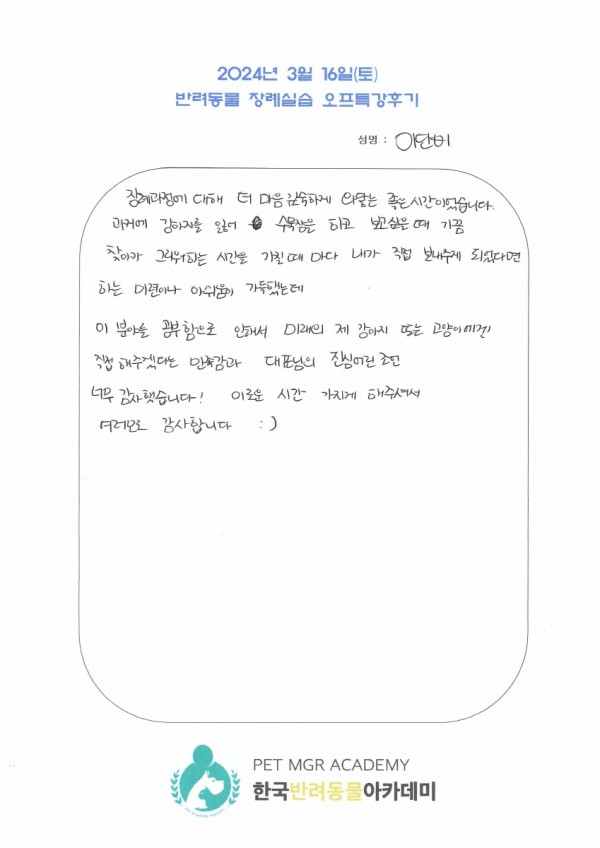 2024년 3월 16일(토)
반려동물 장례실습 오프특강후기
성명 : 이단비
장례과정에 대해 더 마음 깊숙하게 와닿는 좋은 시간이었습니다.
과거에 강아지를 잃어 수목장을 하고 보고싶은 때 가끔
찾아가 그리워하는 시간을 가질 때 마다 내가 직접 보내주게 되었다면
하는 미련이나 아쉬움이 가득했는데
이 분야를 공부함으로 인해서 미래의 제 강아지 또는 고양이에겐
직접 해주겠다는 만족감과 대표님의 진심어린 조언
너무 감사했습니다! 이로운 시간 가지게 해주셔서
여러모로 감사합니다 :)
PET MGR ACADEMY
한국반려동물아카데미